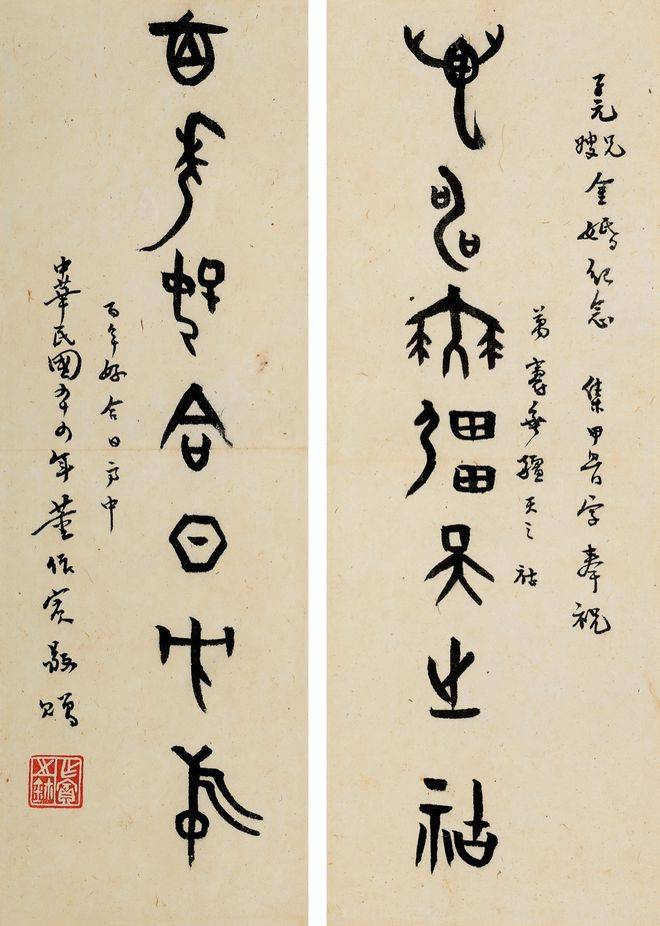 子元兄嫂金婚纪念 集甲骨字奉祝
萬壽無疆天之祜
萬壽無疆天之祜
百年好合日方中
百年好合日方中
中華民國年董作賓敬贈